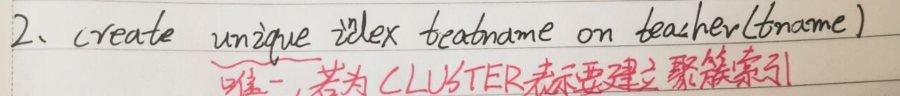 2、create unique idex teatname on teacher(tname)
唯一，若为CLUSTER表示要建立聚簇索引